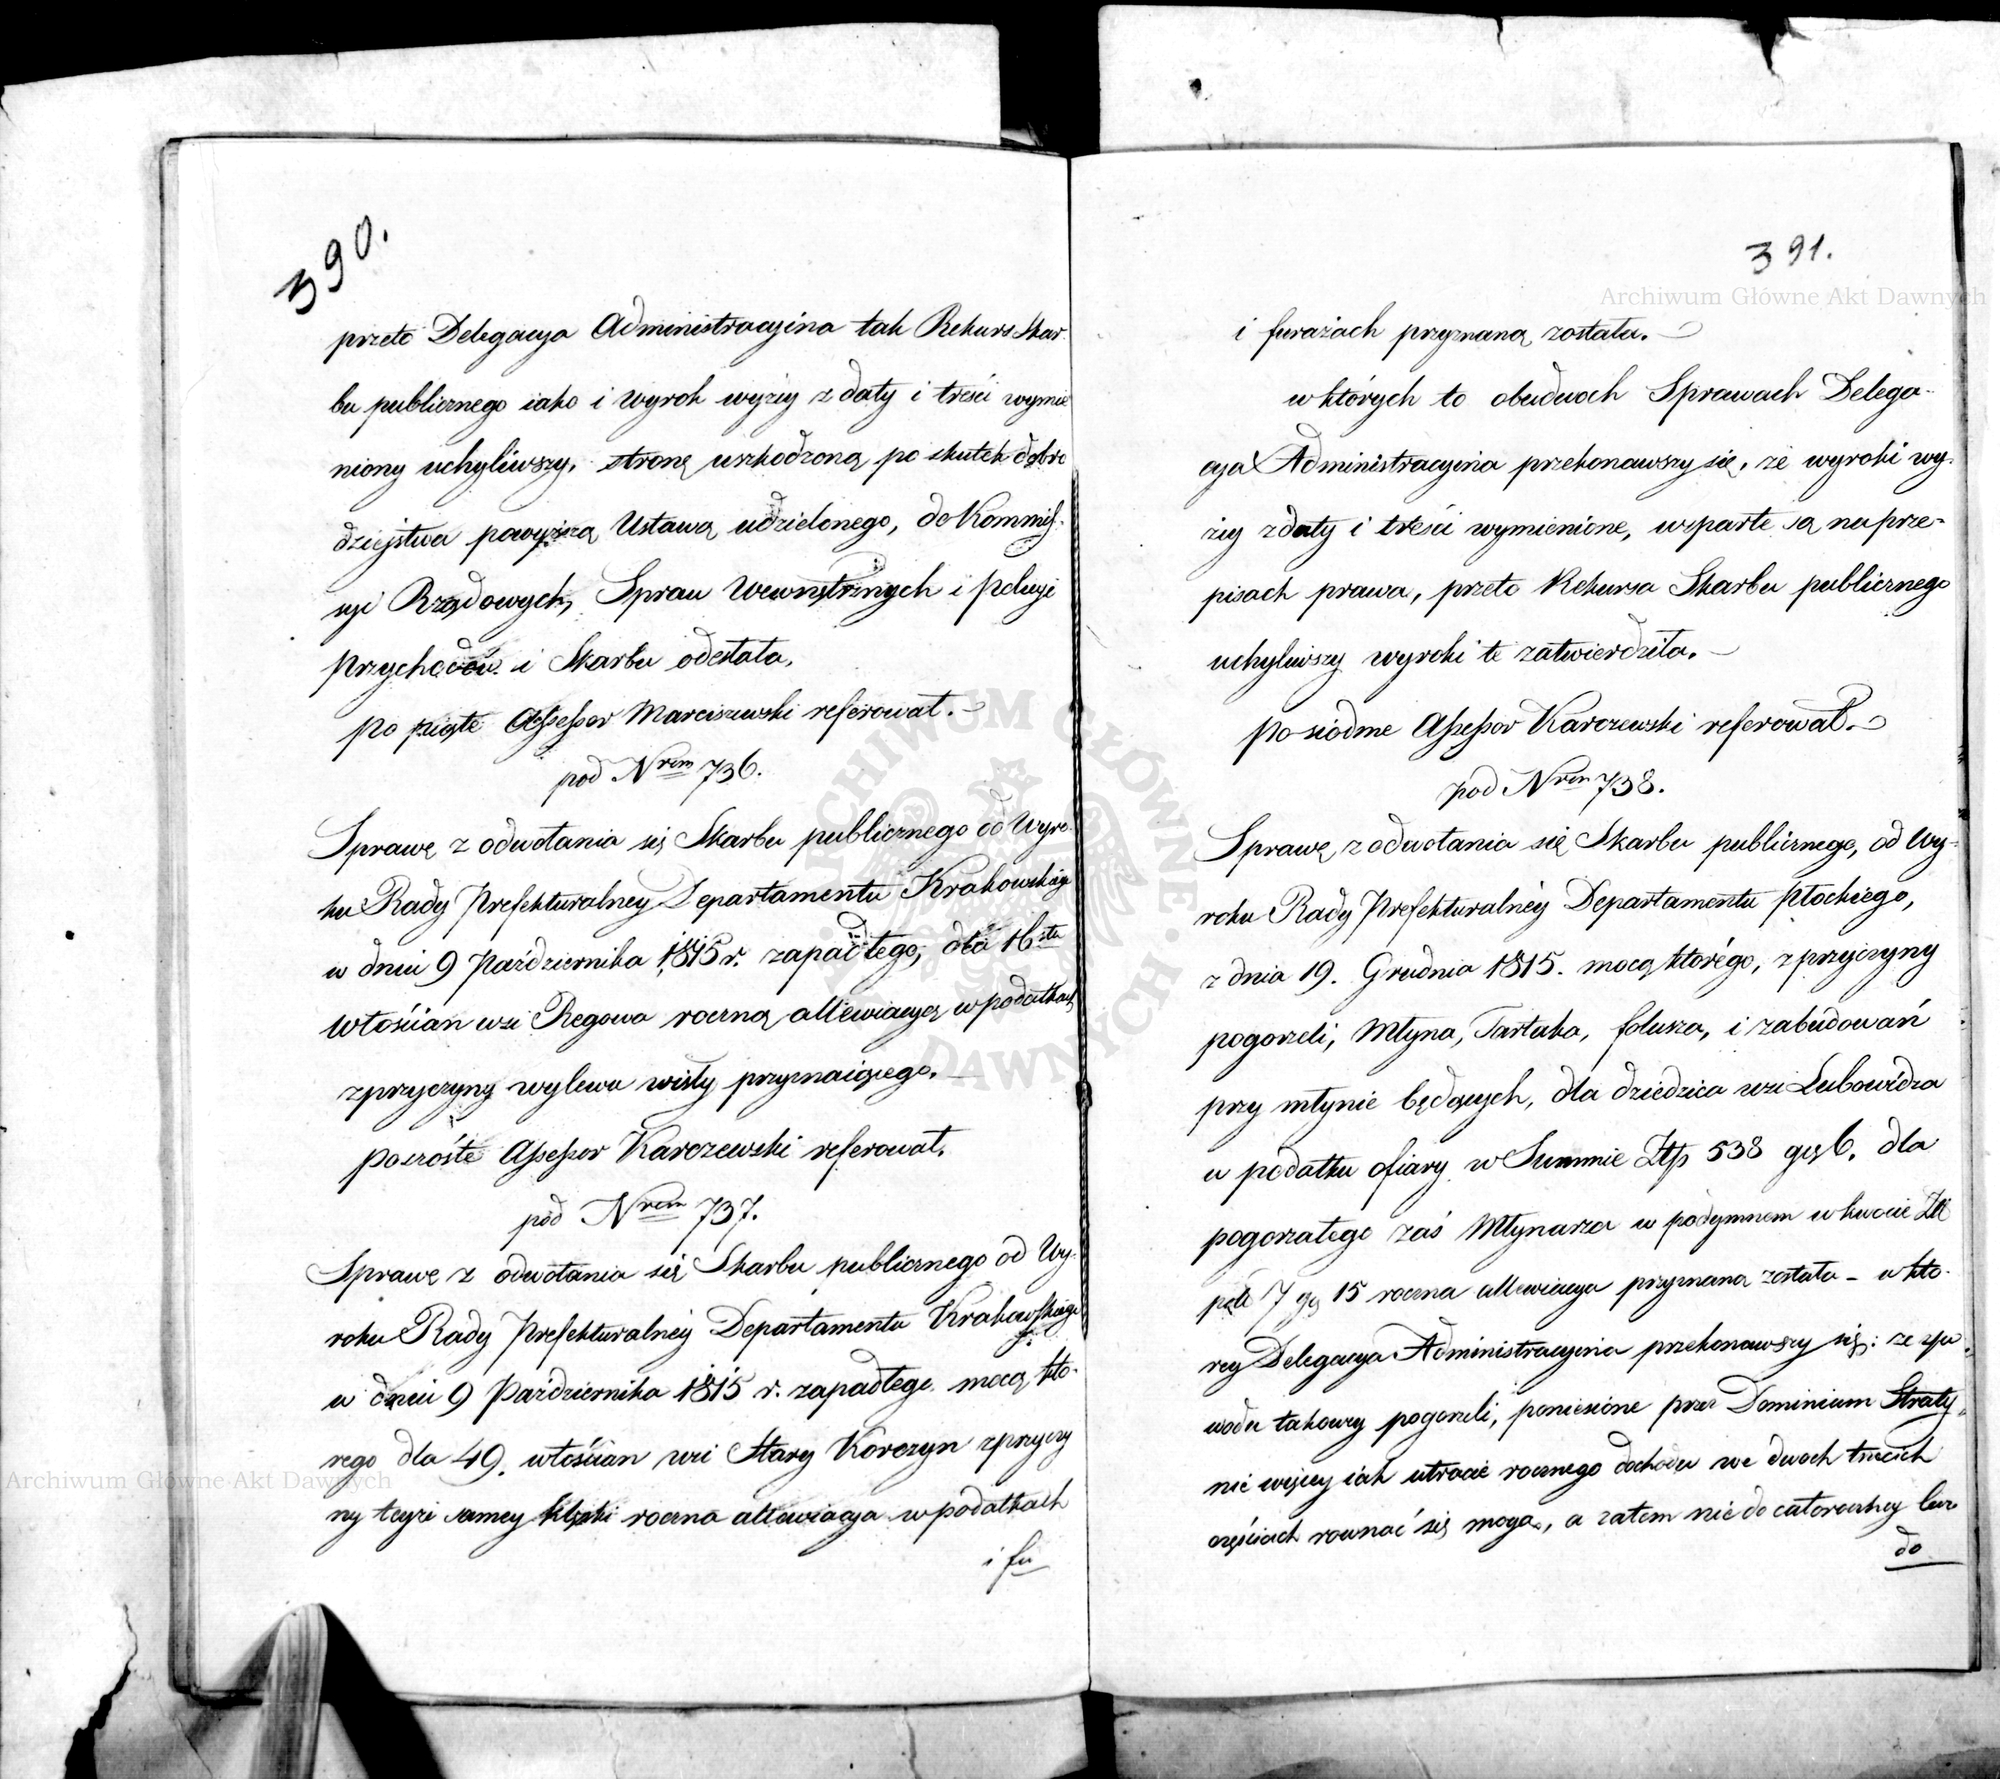 390.
przeto Delegacya Administracyina tak Rekurs Skar-
bu publicznego iako i wyrok wyżey z daty i treści wymie
niony uchyliwszy, stronę uszkodzoną po skutek dobro
dzieystwa powyższą Ustawą udzielonego, do Kommis-
syi Rządowych, Spraw Wewnętrznych i policyi
Przychodów i Skarbu odesłała.
po piąte Assessor Marciszewski referował.
pod Nrem 736.
Sprawę z odwołania się Skarbu publicznego od Wyro-
ku Rady Prefekturalney Departamentu Krakowskiego
w dniu 9 Października 1815 r. zapadłego, dla 16stu
Włościan wsi Regowa roczną allewiacyą w podatkach
z przyczyny wylewu wisły przyznaiącego.
po szóste Assessor Karczewski referował.
pod Nrem 737.
Sprawę z odwołania się Skarbu publicznego od Wy-
roku Rady Prefekturalney Departamentu Krakowskiego
w dniu 9 Października 1815 r. zapadłego mocą któ-
rego dla 49. włościan wsi Stary Korczyn z przyczy
ny teyże samey klęski roczna allewiacya w podatkach
i fu
391.
i furażach przyznaną została.
w których to obudwoch Sprawach Delega-
cya Administracyina przekonawszy się, że wyroki wy-
żey z daty i treści wymienione, wsparte są na prze-
pisach prawa, przeto Rekursa Skarbu publicznego
uchyliwszy wyroki te zatwierdziła.
po siodme Assessor Karczewski referował.
pod Nrem 738.
Sprawę z odwołania się Skarbu publicznego, od Wy-
roku Rady Prefekturalney Departamentu Płockiego,
z dnia 19. Grudnia 1815. mocą którego, z przyczyny
pogorzeli, Młyna, Tartaka, folusza, i zabudowań
przy młynie będących, dla dziedzica wsi Lubowidza
w podatku ofiary w Summie Złp 538 gr 6. dla
pogorzałego zaś Młynarza w podymnem w kwocie Zł
pol 7 gr 15 roczna allewiacya przyznana została - w któ-
rey Delegacya Administracyina przekonawszy się: że z po
wodu takowey pogorzeli, poniesione przez Dominium Straty,
nie więcey iak utracie rocznego dochodu we dwoch trzecich
częściach rownać się mogą, a zatem nie do całoroczney lecz
do
Archiwum Główne Akt Dawnych
Archiwum Główne Akt Dawnych
ARCHIWUM GŁÓWNE AKT DAWNYCH